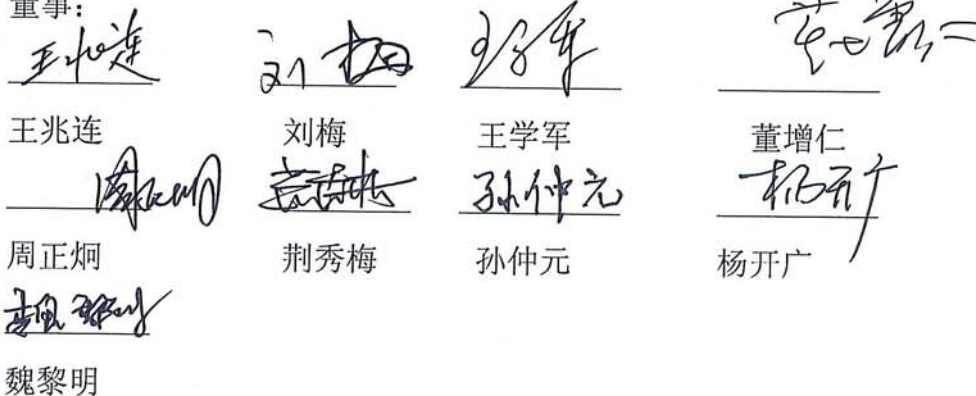 董事:
王兆连 刘梅 王学军 董增仁
王兆连 刘梅 王学军 董增仁
周正炯 荆秀梅 孙仲元 杨开广
周正炯 荆秀梅 孙仲元 杨开广
魏黎明
魏黎明